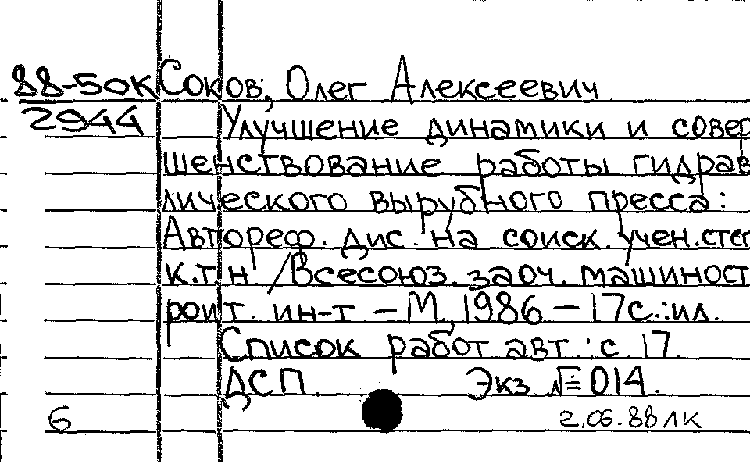 88-50К Соков, Олег Алексеевич
2944 Улучшение динамики и совер
шенствование работы гидрав
лического вырубного пресса:
Автореф. дис. на соиск. учен. степ
к.т.н /Всесоюз. заоч. машиност
роит. ин-т – М, 1986 – 17с.:ил.
Список работ авт.: с. 17.
ДСП. Экз №014.
6 2.06.88 ЛК